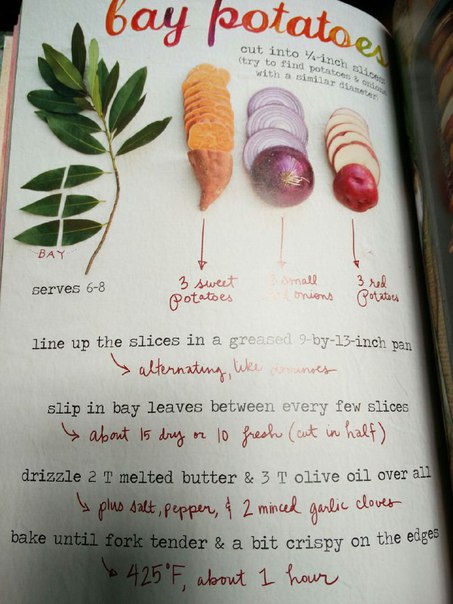 bay potatoes
cut into ¼-inch slices
(try to find potatoes & onions
with a similar diameter
BAY
serves 6-8
3 sweet potatoes
3 small onions
3 red potatoes
line up the slices in a greased 9-by-13-inch pan
alternating, like dominoes
slip in bay leaves between every few slices
about 15 dry or 10 fresh (cut in half)
drizzle 2 T melted butter & 3 T olive oil over all
plus salt, pepper, & 2 minced garlic cloves
bake until fork tender & a bit crispy on the edges
425°F, about 1 hour